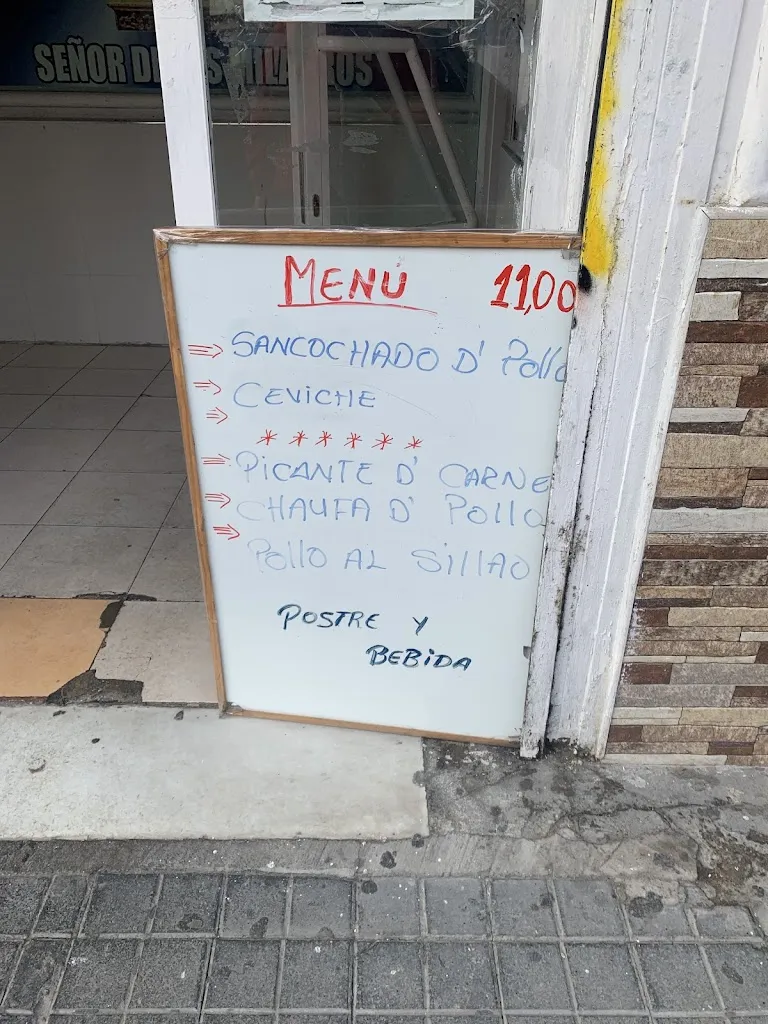 SEÑOR DE LOS MILAGROS
MENÚ 11,00
⇒ SANCOCHADO D' Pollo
⇒ CEVICHE
⇒
* * * * * *
⇒ PICANTE D' CARNE
⇒ CHAUFA D' Pollo
⇒ Pollo AL SillAO
POSTRE Y
BEBiDA